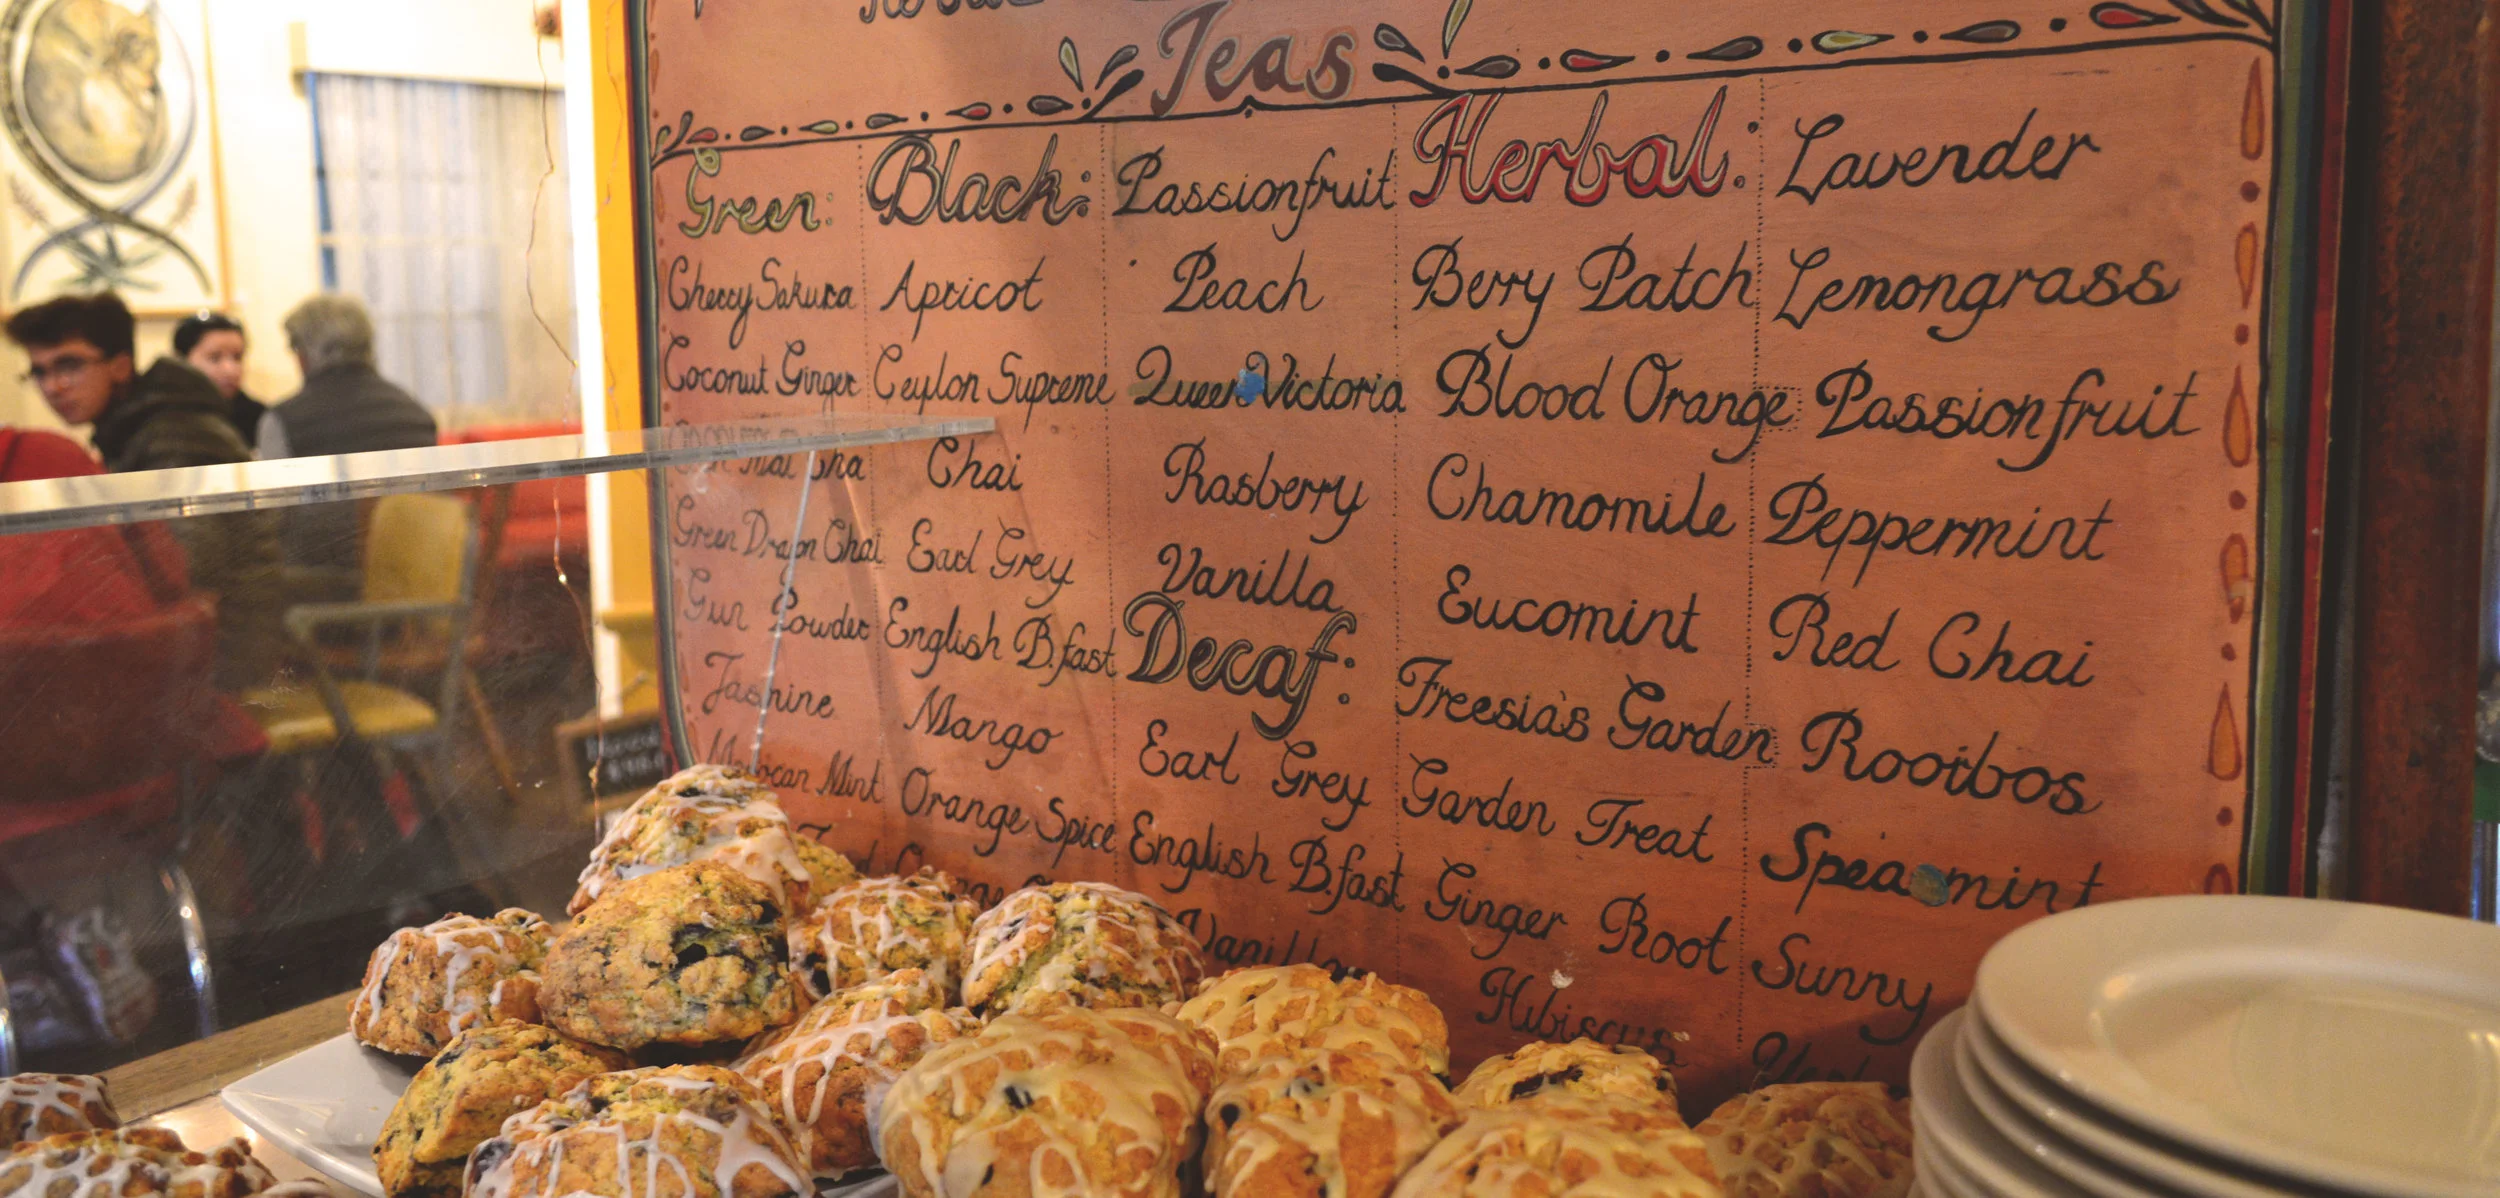 Teas
Green:
Cherry Sakura
Coconut Ginger
Cha
Green Dragon Chai
Gun Powder
Jasmine
Moroccan Mint
Black:
Apricot
Ceylon Supreme
Chai
Earl Grey
English B.fast
Mango
Orange Spice
Orange
Passionfruit
Peach
Queen Victoria
Rasberry
Vanilla
Decaf:
Earl Grey
English B.fast
Vanilla
Herbal:
Berry Patch
Blood Orange
Chamomile
Eucomint
Freesia's Garden
Garden Treat
Ginger Root
Hibiscus
Lavender
Lemongrass
Passionfruit
Peppermint
Red Chai
Rooibos
Spearmint
Sunny